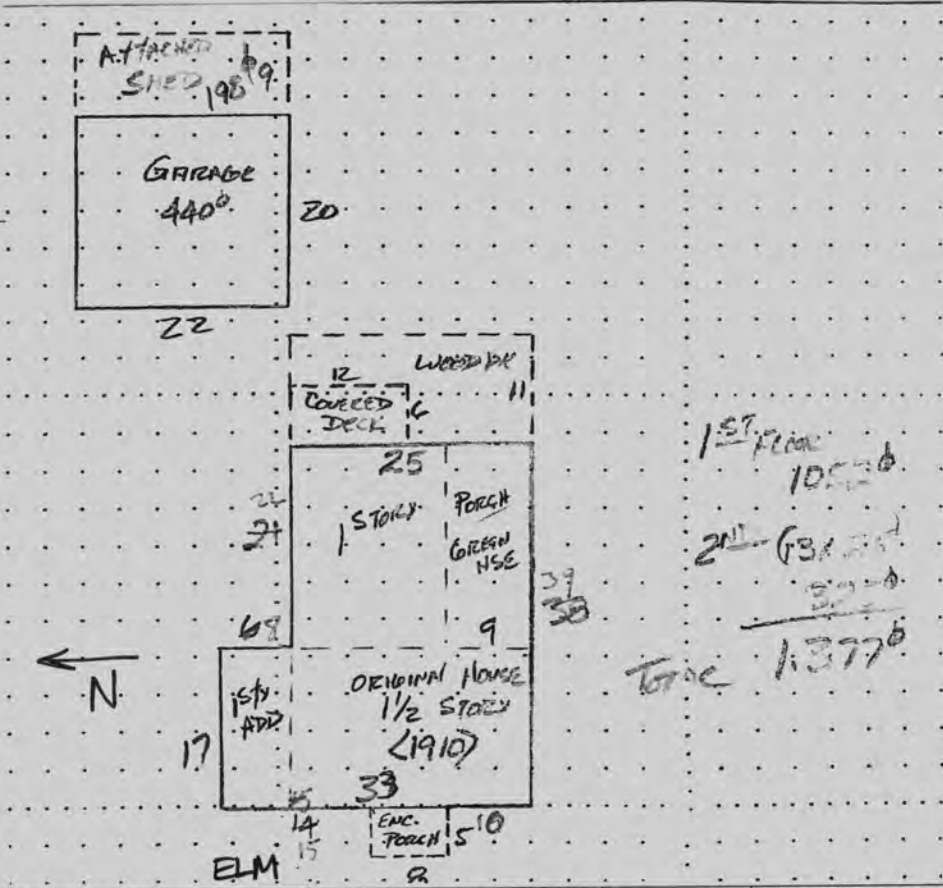 ATTACHED
SHED 198 9
GARAGE
440
20
22
WOOD DK
12
11
COVERED
DECK
6
25
1 STORY
PORCH
GREEN
HSE
21
39
38
68
9
N
1 STY
ADD
ORIGINAL HOUSE
1 1/2 STORY
<1910>
17
33
14
15
ENC.
PORCH
5
10
8
ELM
1ST FLOOR
2ND
TOTAL 1,377